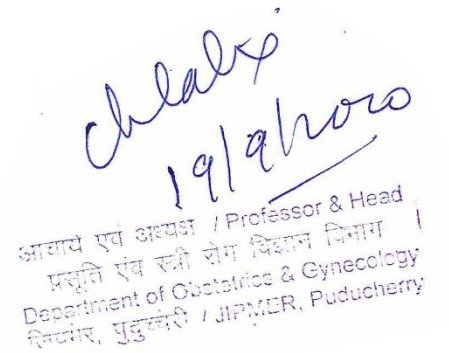 19/9/2020
आचार्य एवं अध्यक्ष / Professor & Head
प्रसूति एंव स्त्री रोग विज्ञान विभाग
Department of Obstetrics & Gynecology
जिपमेर, पुदुच्चेरी / JIPMER, Puducherry